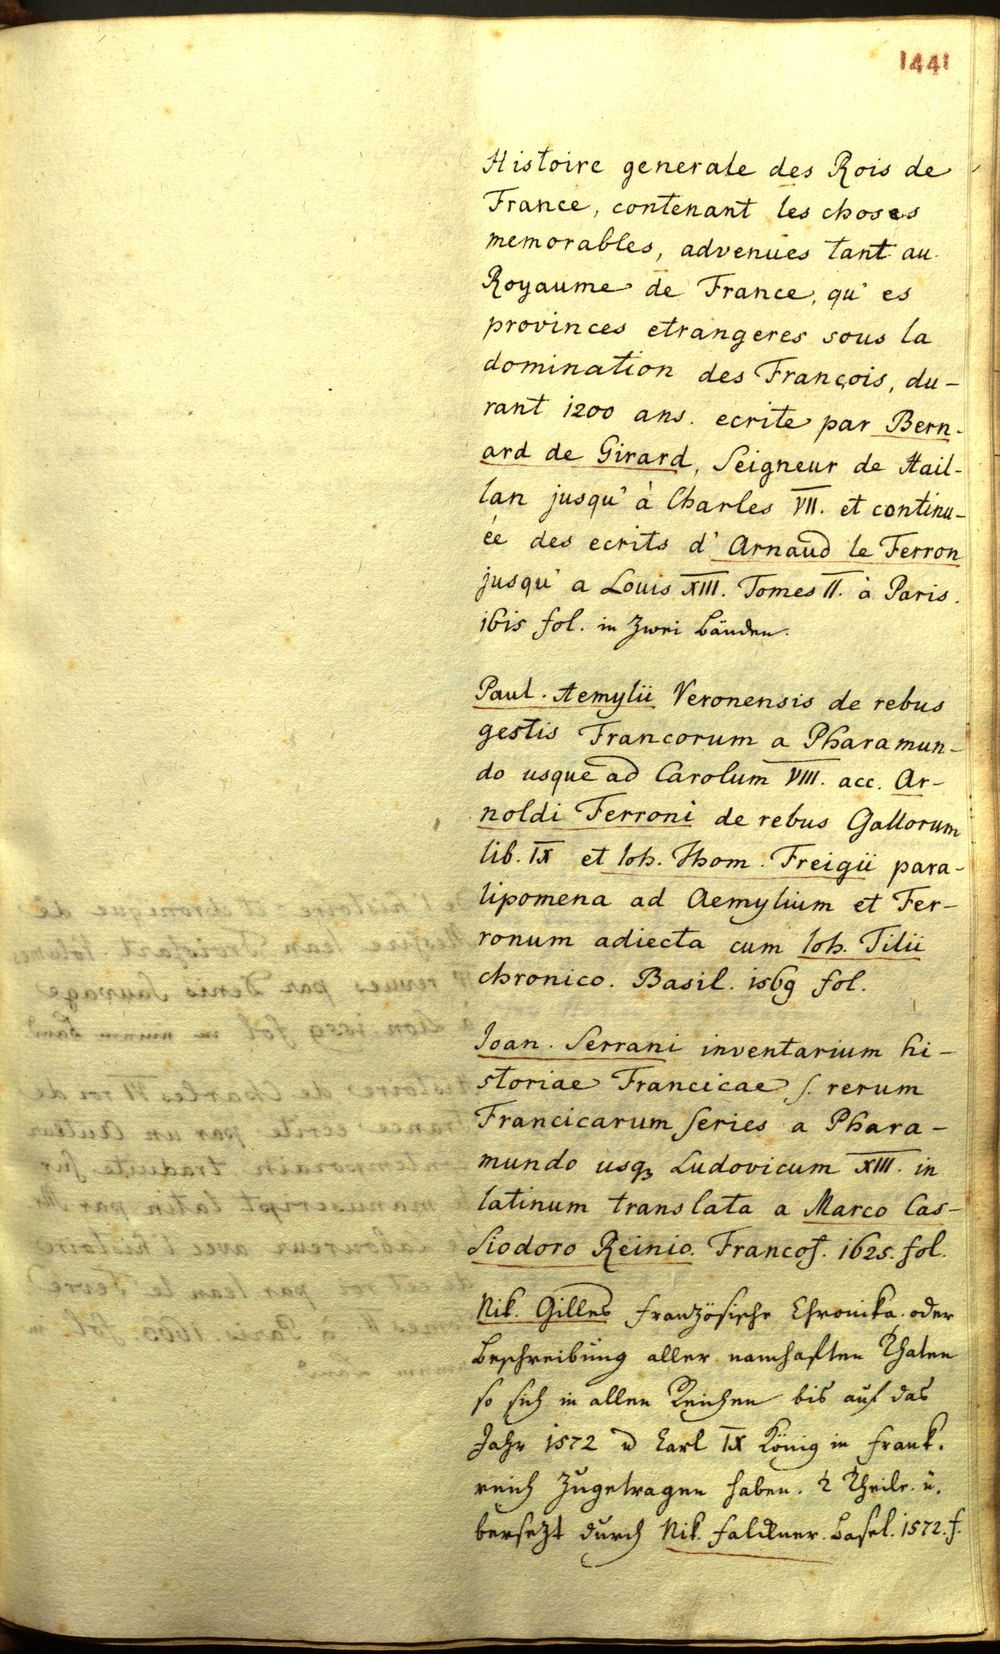 1441
Histoire generale des Rois de
France, contenant les choses
memorables, advenues tant au
Royaume de France, qu' es
provinces etrangeres sous la
domination des François, du-
rant 1200 ans. ecrite par Bern-
ard de Girard, Seigneur de Hail-
lan jusqu' à Charles VII. et continu-
ée des ecrits d' Arnaud le Ferron
jusqu' a Louis XIII. Tomes II. à Paris.
1615 fol. in zwei Bänden.
Paul. Aemylii Veronensis de rebus
gestis Francorum a Pharamun-
do usque ad Carolum VIII. acc. Ar-
noldi Ferroni de rebus Gallorum
lib. IX et Ioh. Thom. Freigii para-
lipomena ad Aemylium et Fer-
ronum adiecta cum Ioh. Tilii
chronico. Basil. 1569 fol.
Ioan. Serrani inventarium hi-
storiae Francicae s. rerum
Francicarum series a Phara-
mundo usq Ludovicum XIII. in
latinum translata a Marco Cas-
siodoro Reinio. Francof. 1625. fol.
Nik. Gilles französische Chronika oder
Beschreibung aller namhaften Thaten
so sich in allen Reichen bis auf das
Jahr 1572 Karl IX König in Frank-
reich zugetragen haben. 2 Theile. ü-
bersezt durch Nik. Falkner. Basel. 1572. f.